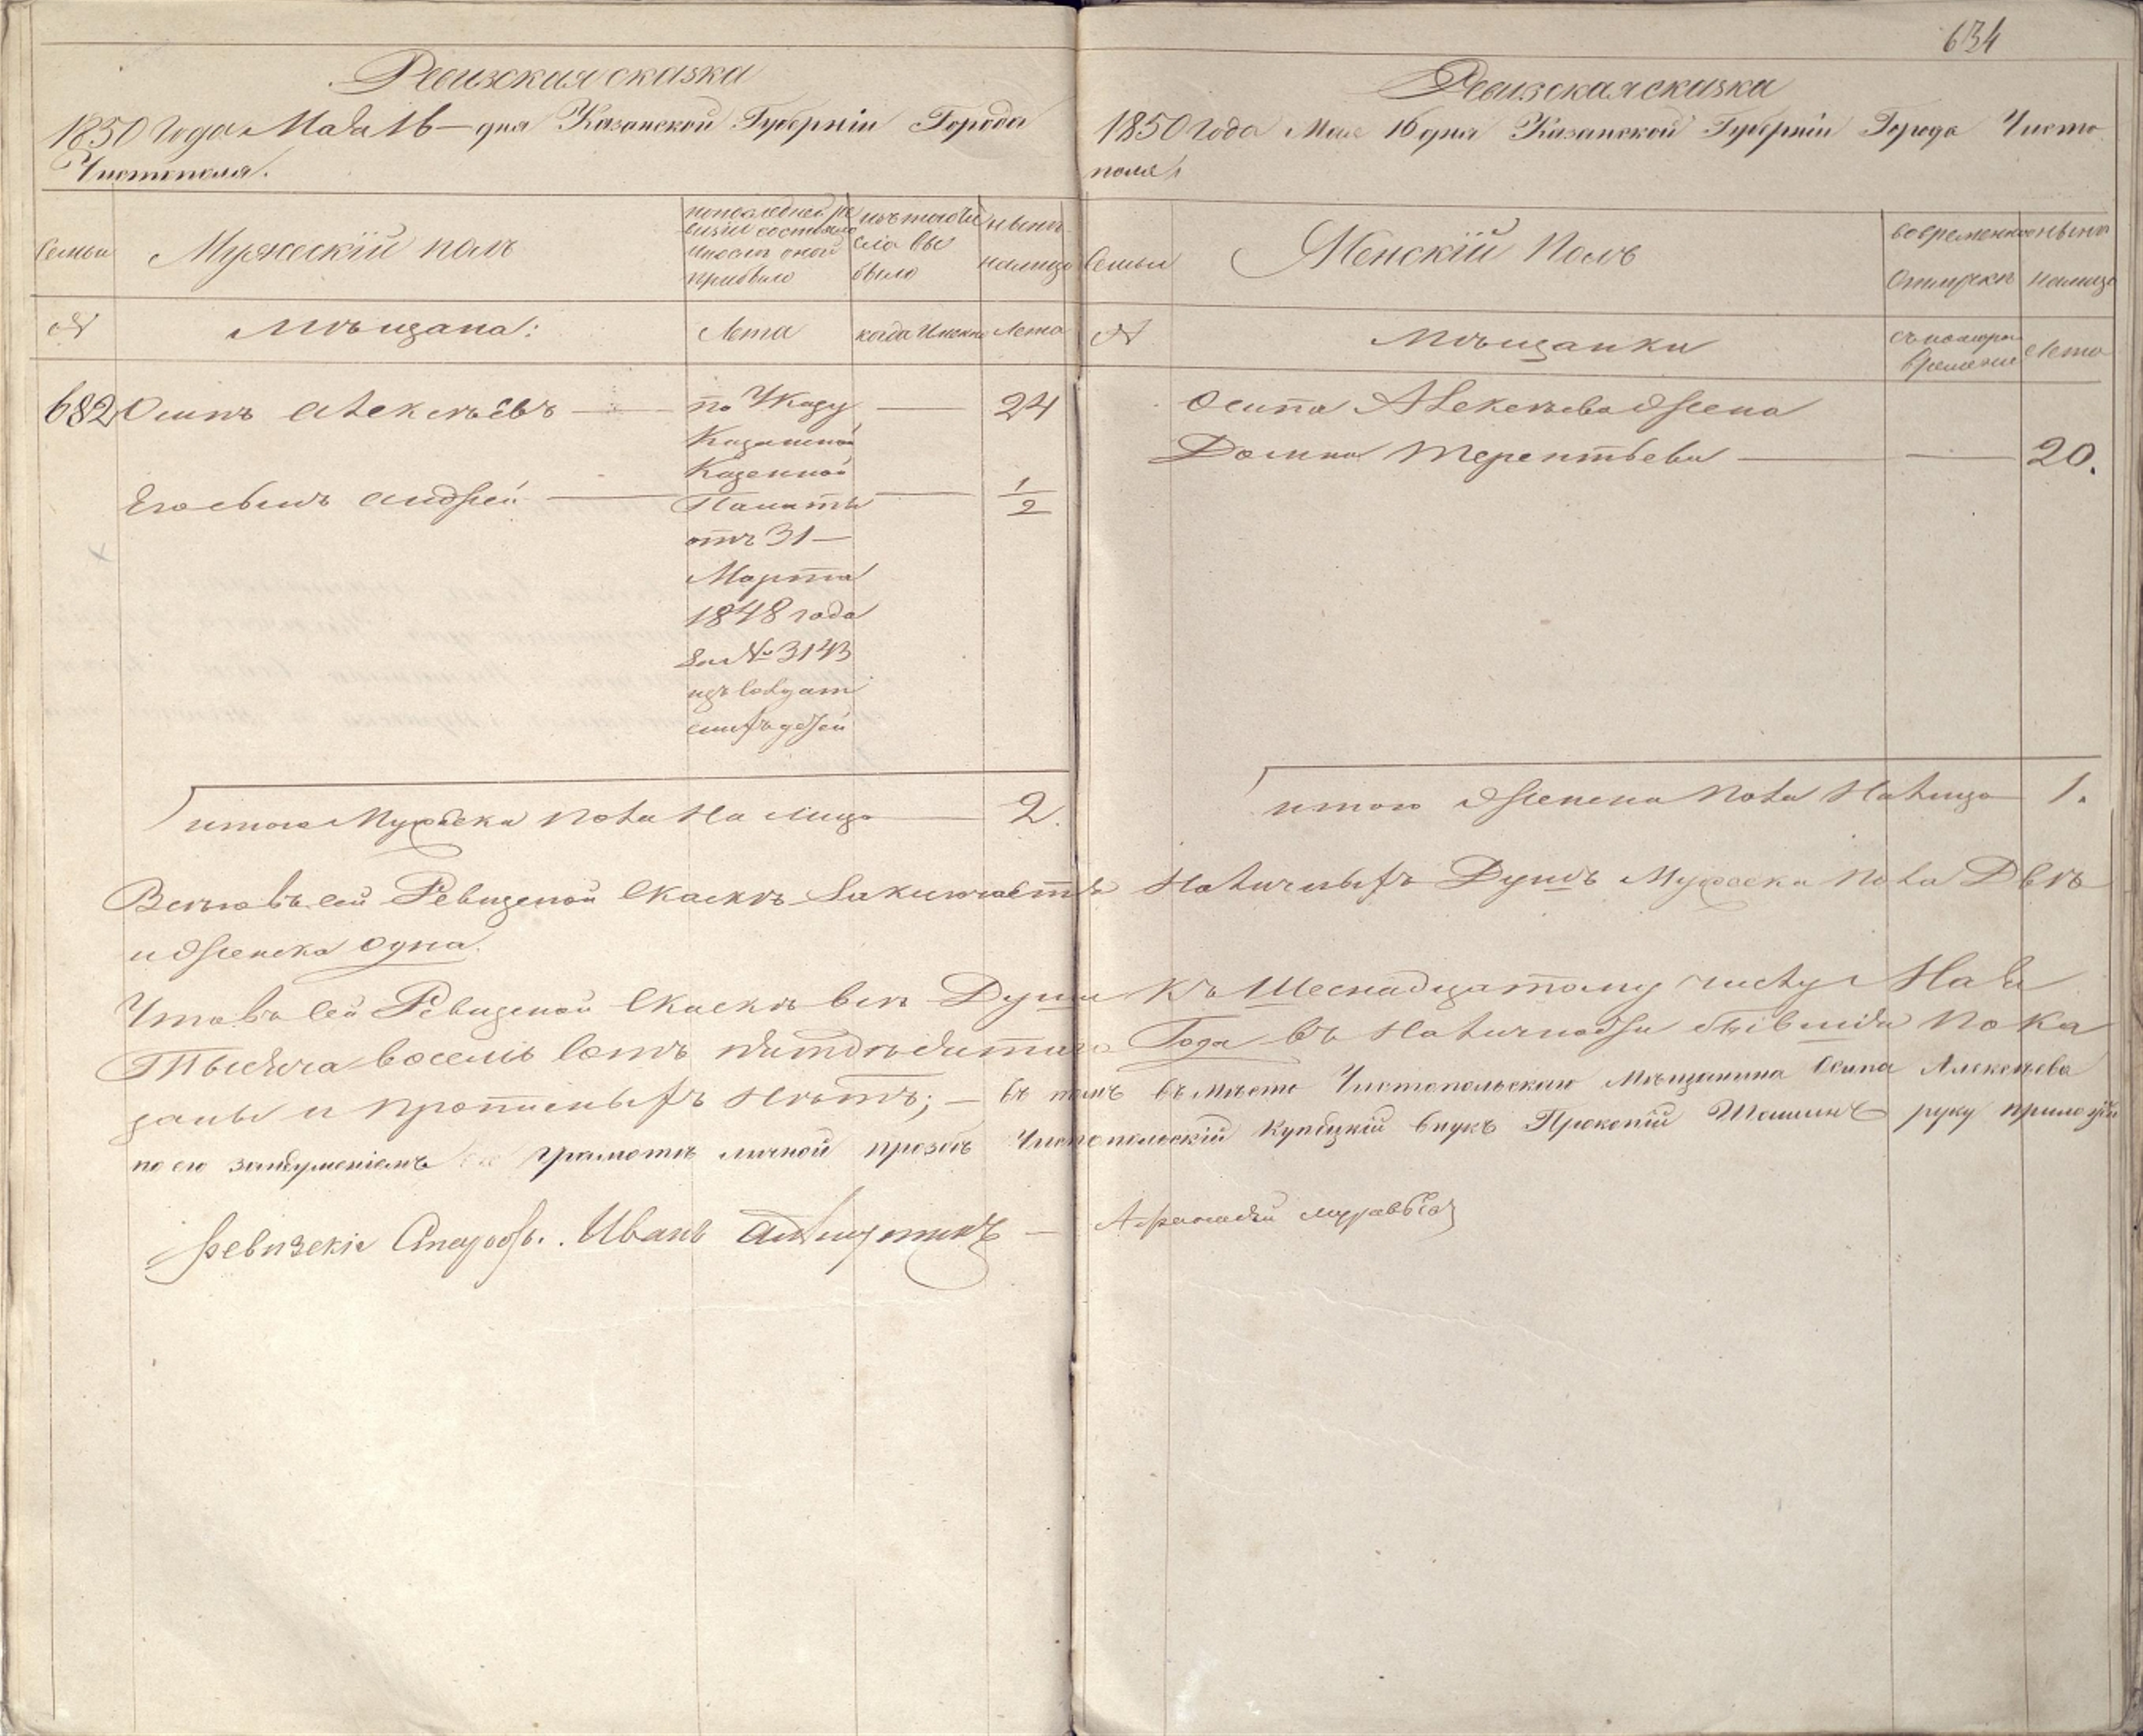 Ревизская сказка
1850 года Мая 16 – дня Казанской Губерніи Города
Чистополя.
Семьи
Мужескій полъ
по последней ре
визіи состояло
и после оной
прибыло
изъ того чи
сла вы
было
ныне
налицо
№
Мѣщана:
Лета
когда именно
Лета
682
Осипъ Алексѣевъ
по Указу
24
Казанской
Казенной
Его сынъ Андрей
Палаты
1/2
отъ 31 –
Марта
1848 года
за № 3143
изъ солдат
скихъ детей
итого Мужеска пола на лицо 2.
634
Ревизская сказка
1850 года Мая 16 дня Казанской Губерніи Города Чисто
поля
Семьи
Женскій полъ
во временной
отлучкѣ
ныне
налицо
№
Мѣщанки
съ котора
времени
Лета
Осипа Алексѣева жена
Домна Терентьева 20.
итого женска пола налицо 1.
Всего въ сей Ревизской Скаскѣ заключаетъ наличныхъ Душъ Мужеска пола Двѣ
и женска одна.
Что въ сей Ревизской Скаскѣ все Души къ Шеснадцатому числу Мая
Тысяча восемь сотъ пятдѣсятаго Года въ наличности бывшия пока
заны и прописныхъ нѣтъ; – въ томъ въ мѣсто Чистопольскаго Мѣщанина Осипа Алексѣева
по его грамотѣ личной прозьбѣ Чистопольскій купецкій внукъ Прокопій Шашинъ руку приложилъ
Ревизскіе Иванъ